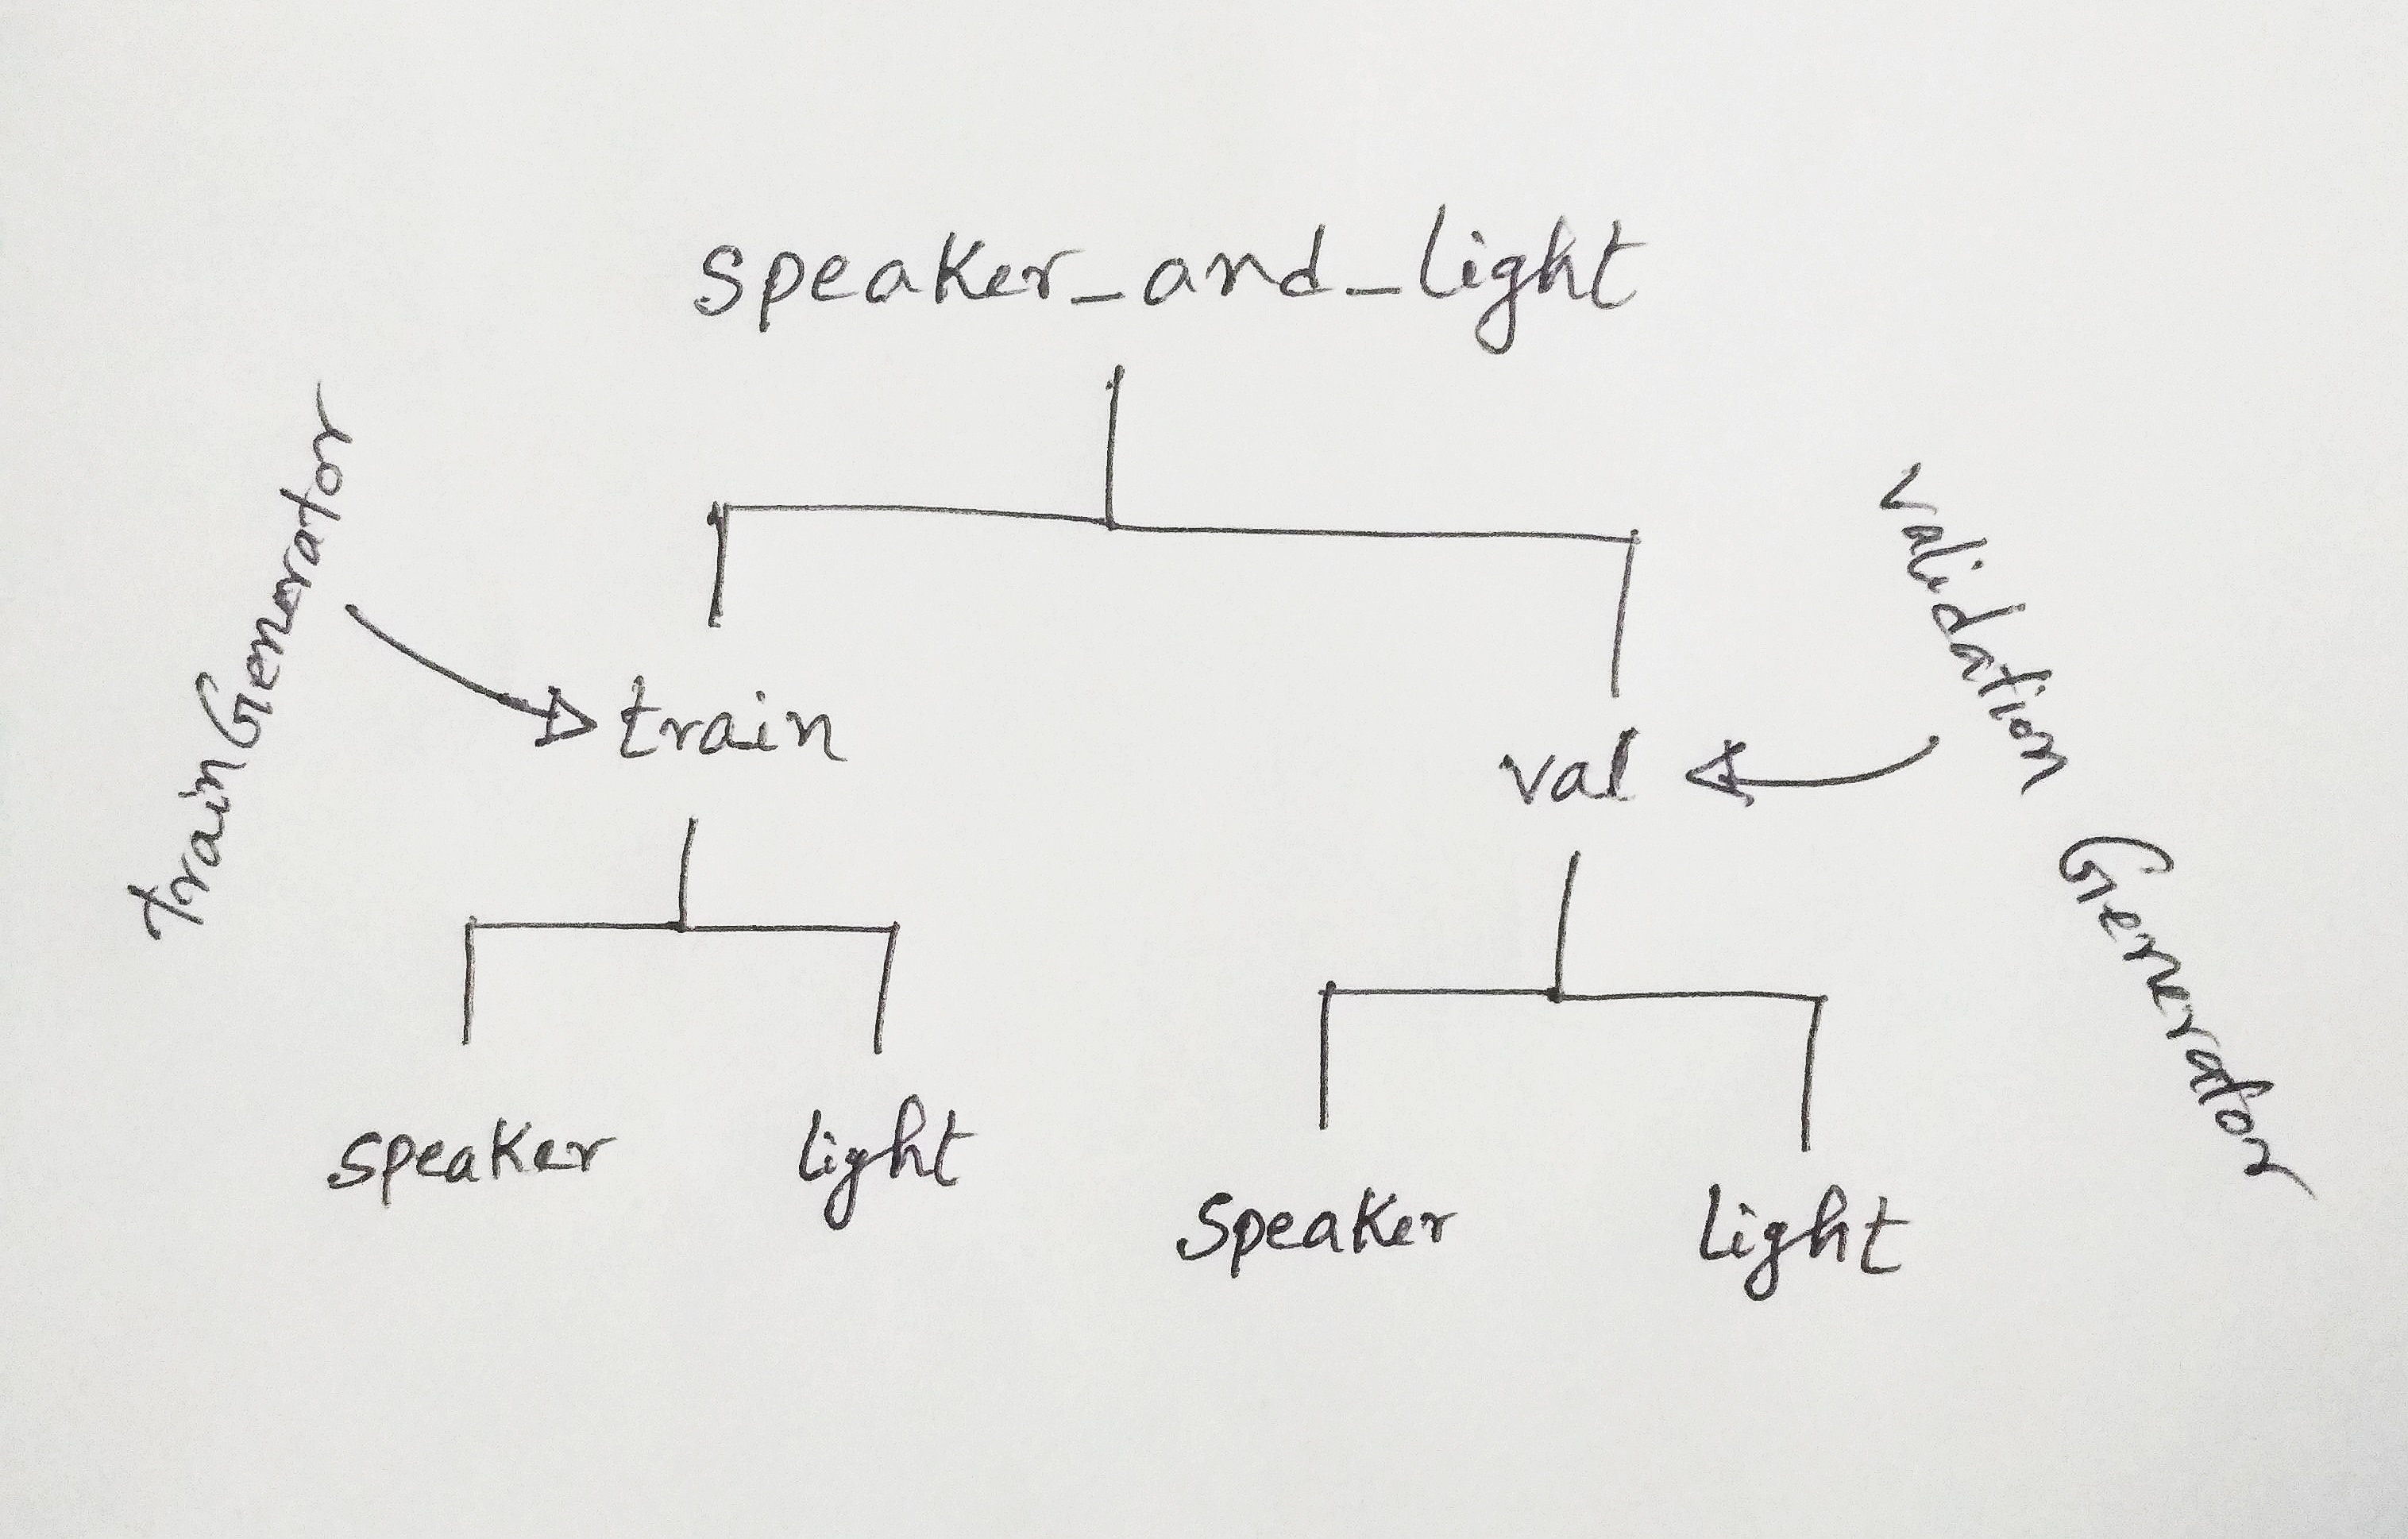 speaker_and_light
TrainGenerator
validation Generator
train
val
speaker
light
speaker
light